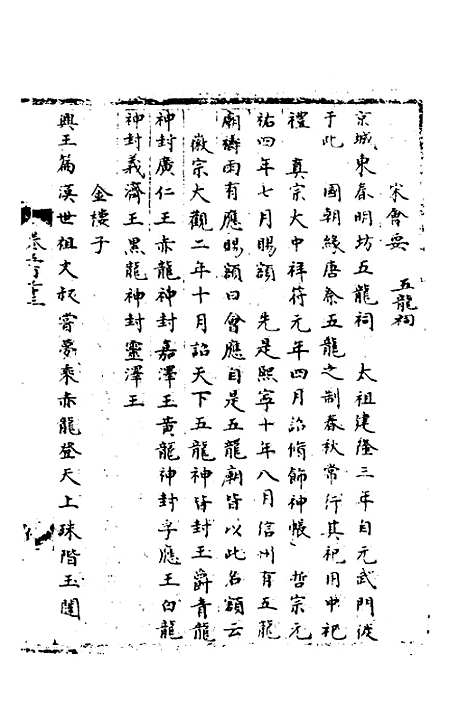 宋會要　五龍祠
京城東春明坊五龍祠　太祖建隆三年自元武門徙
于此　國朝緣唐祭五龍之制春秋常行其祀用中祀
禮　真宗大中祥符元年四月詔脩飾神帳　哲宗元
祐四年七月賜額　先是熙寧十年八月信州有五龍
廟禱雨有應賜額曰會應自是五龍廟皆以此名額云
徽宗大觀二年十月詔天下五龍神皆封王爵青龍
神封廣仁王赤龍神封嘉澤王黄龍神封孚應王白龍
神封義濟王黑龍神封靈澤王
金樓子
興王篇漢世祖文叔嘗夢乘赤龍登天上珠階玉闥